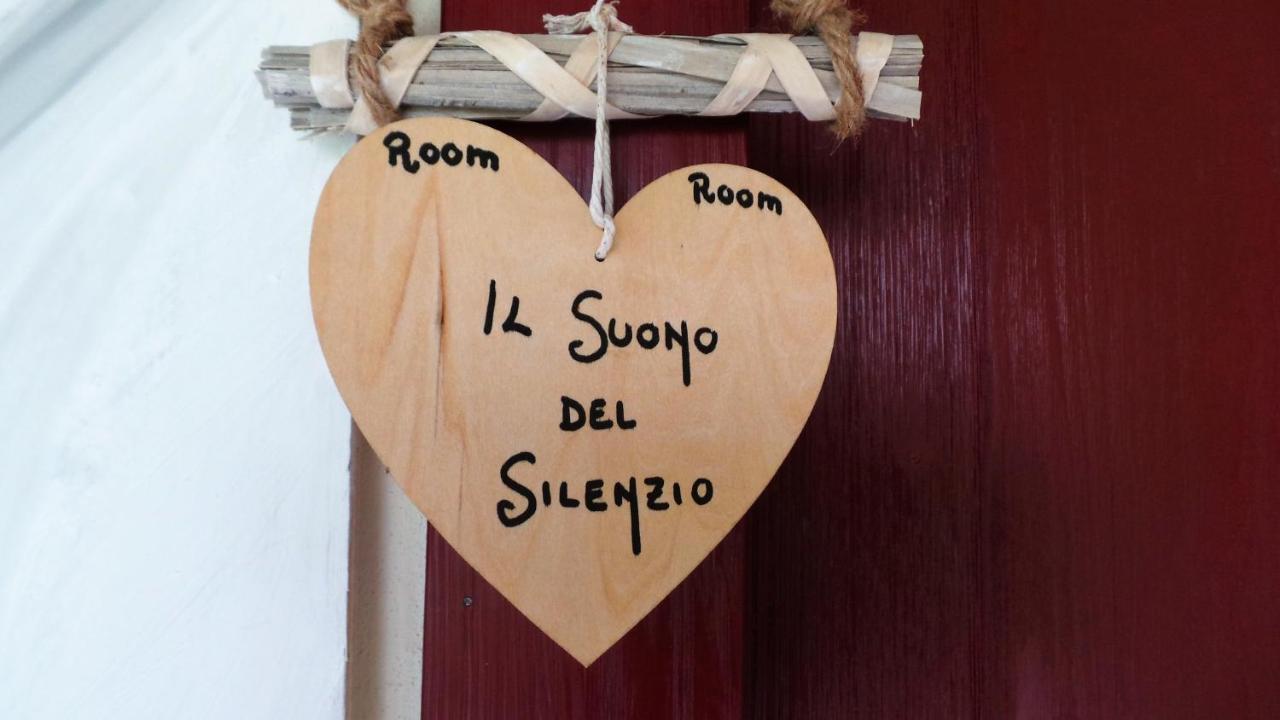 Room Room
Il Suono
DEL
Silenzio